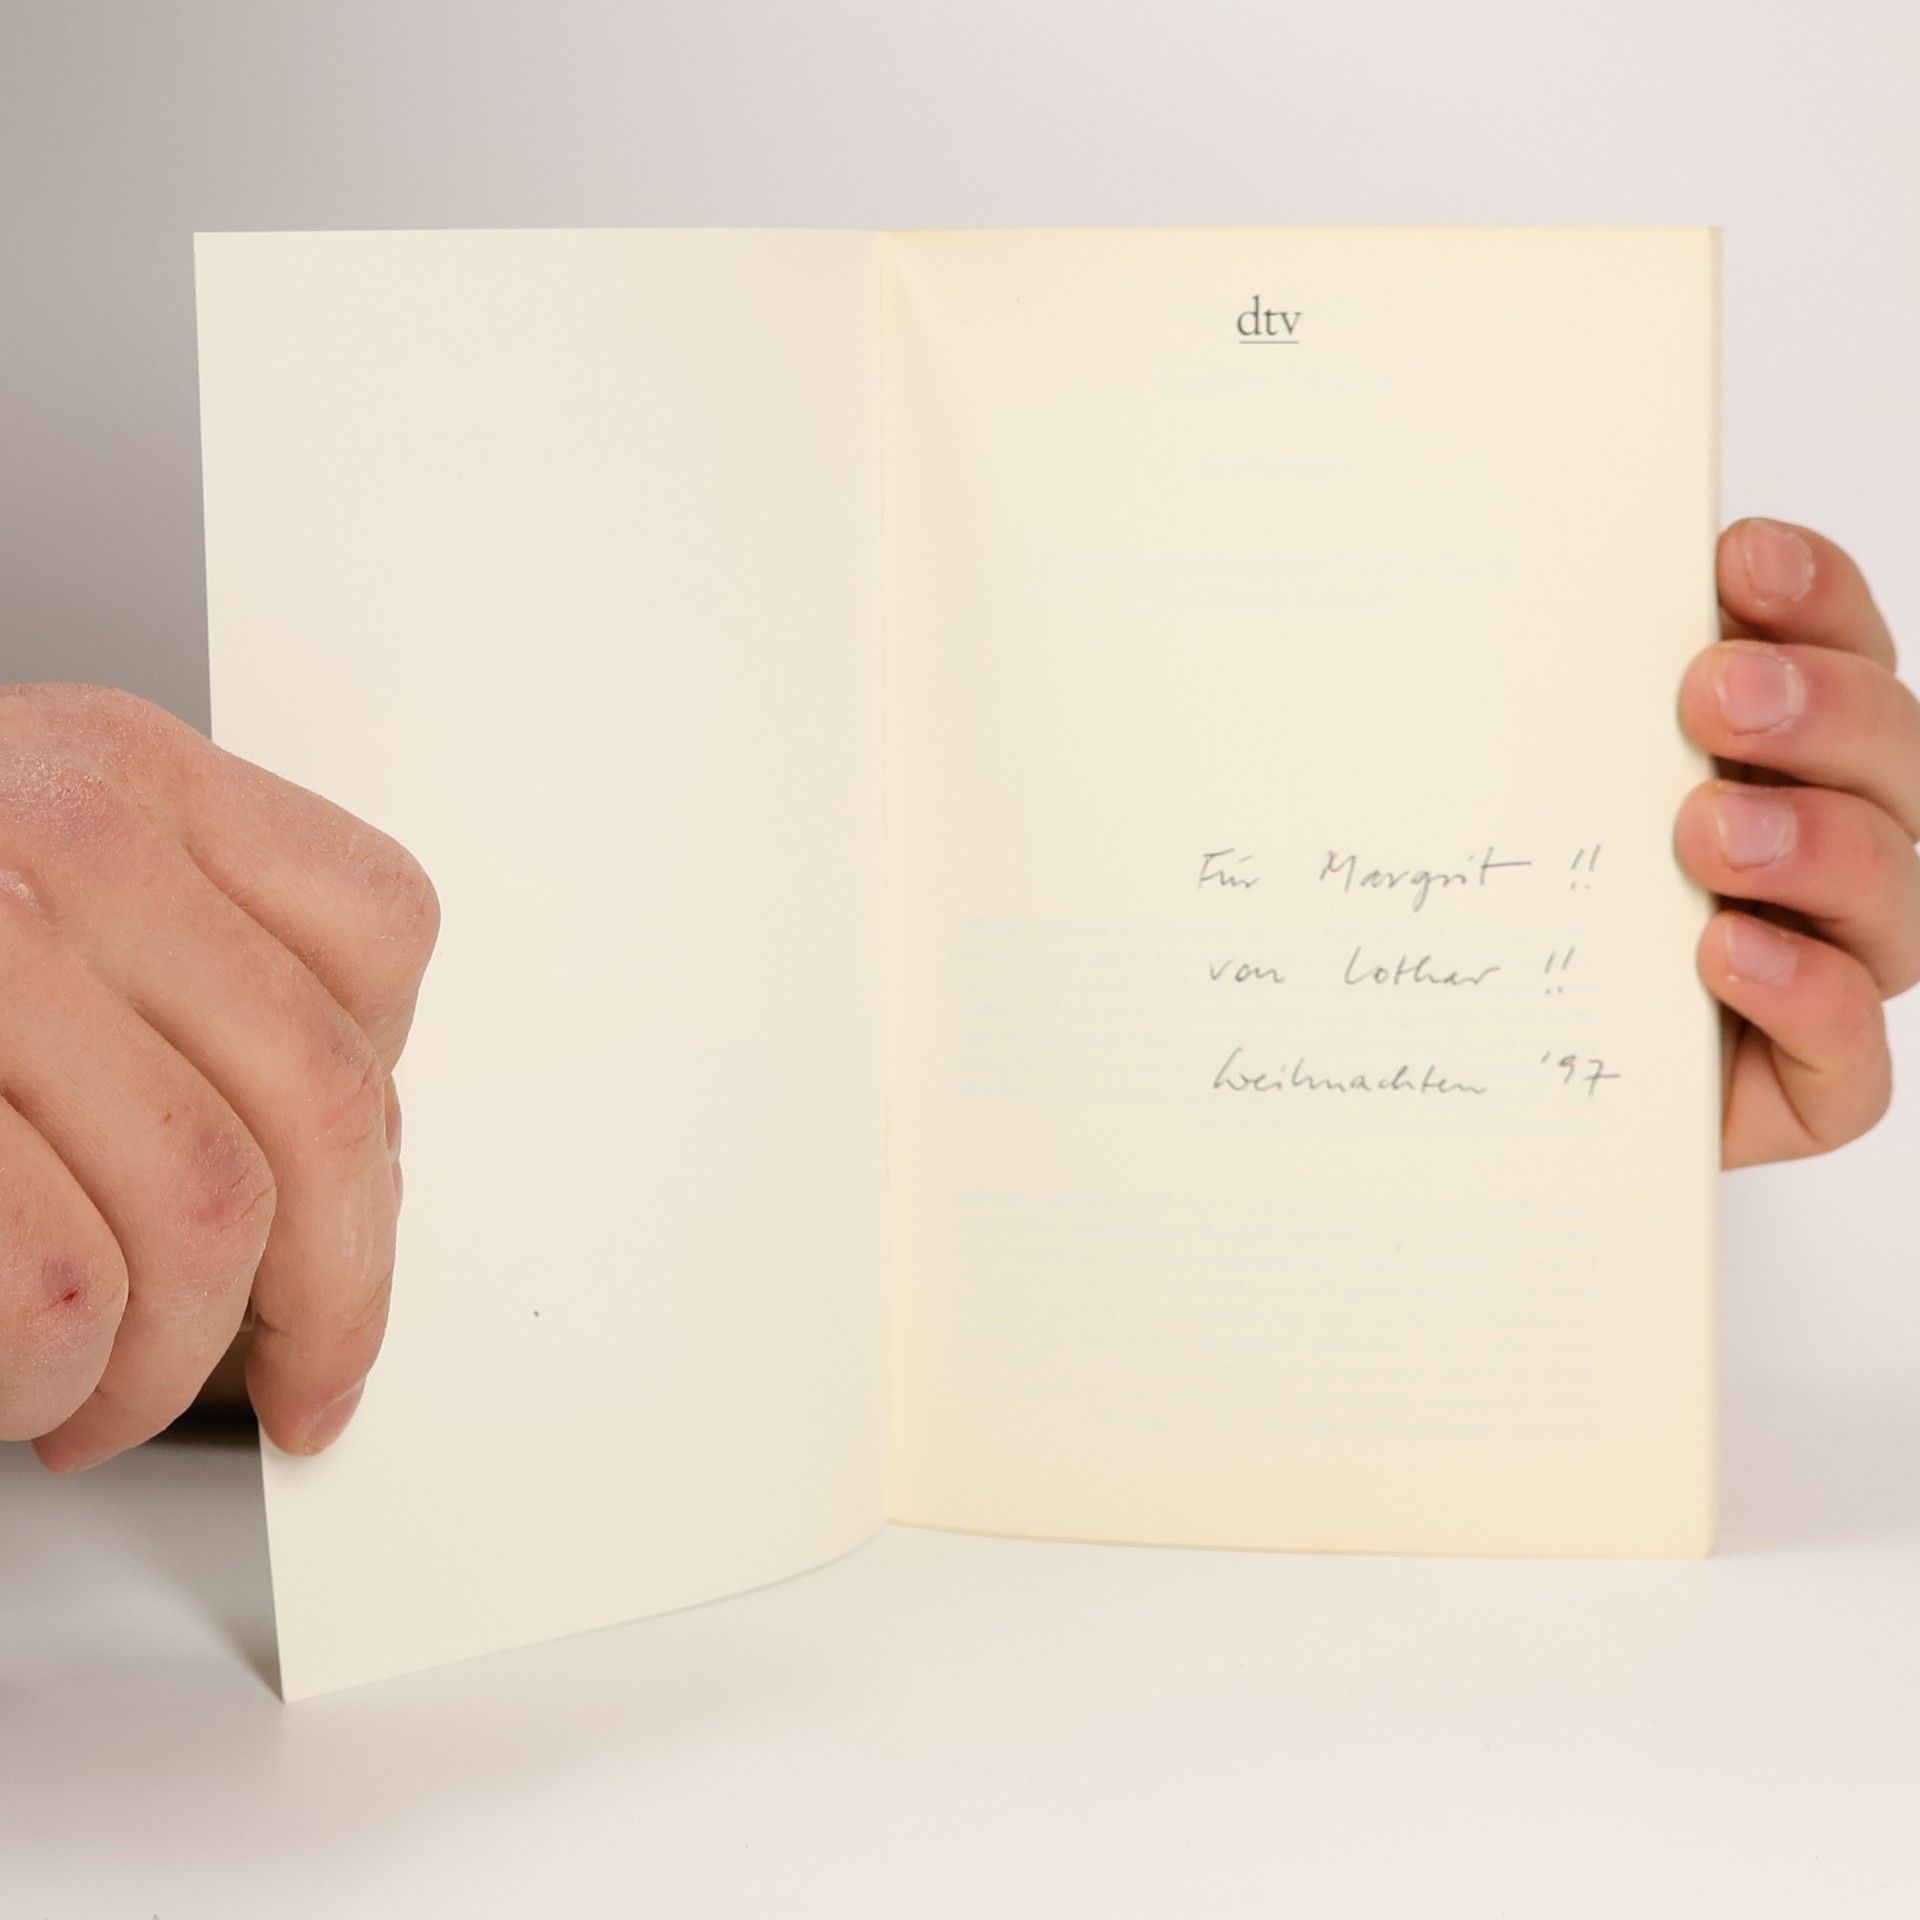 dtv
Für Margrit !!
von Lothar !!
Weihnachten '97